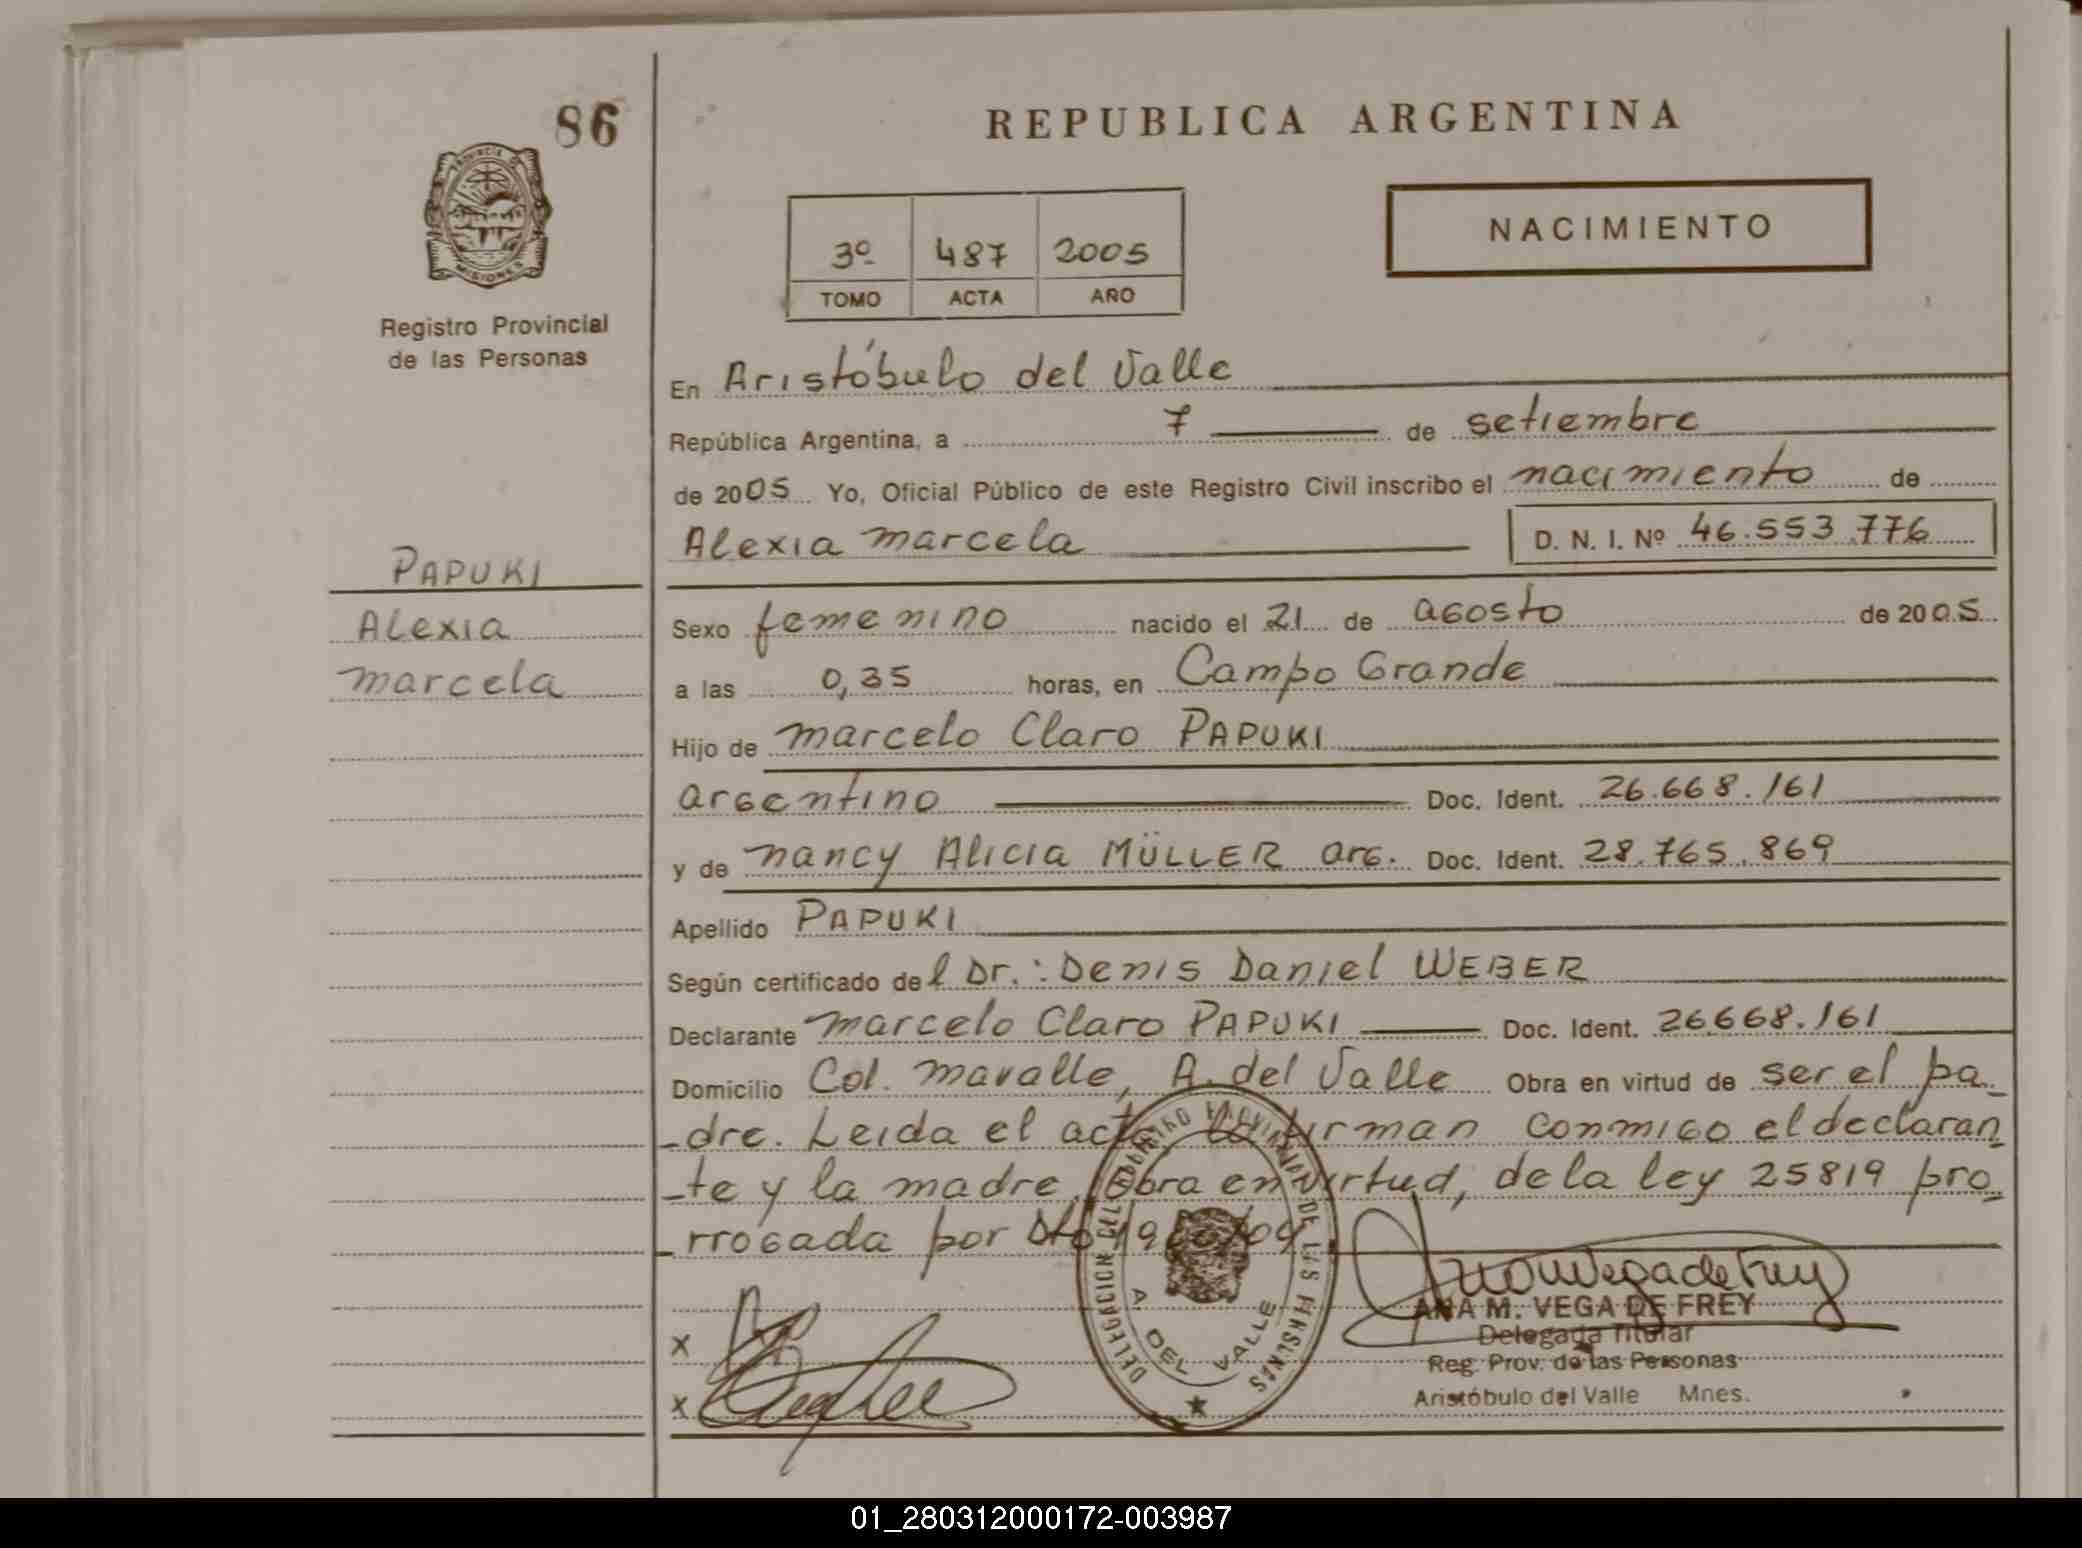 86
REPUBLICA ARGENTINA
PROVINCIA DE
MISIONES
Registro Provincial
de las Personas
3º 487 2005
TOMO ACTA AÑO
NACIMIENTO
En Aristóbulo del Valle
República Argentina, a 7 de setiembre
de 2005 Yo, Oficial Público de este Registro Civil inscribo el nacimiento de
Alexia marcela D. N. I. Nº 46.553.776
PAPUKI
Alexia
marcela
Sexo femenino nacido el 21 de agosto de 2005
a las 0,35 horas, en Campo Grande
Hijo de marcelo Claro PAPUKI
argentino Doc. Ident. 26.668.161
y de nancy Alicia MÜLLER arg. Doc. Ident. 28.765.869
Apellido PAPUKI
Según certificado del Dr.: Denis Daniel WEBER
Declarante marcelo Claro PAPUKI Doc. Ident. 26668.161
Domicilio Col. mavalle, A. del Valle Obra en virtud de ser el pa-
-dre. Leida el acta la firman conmigo el declaran-
-te y la madre. Obra en virtud, de la ley 25819 pro-
-rrogada por
DELEGACION DEL REGISTRO PROVINCIAL DE LAS PERSONAS
A. DEL VALLE
ANA M. VEGA DE FREY
Delegada Titular
Reg. Prov. de las Personas
Aristóbulo del Valle Mnes.
x
x
01_280312000172-003987